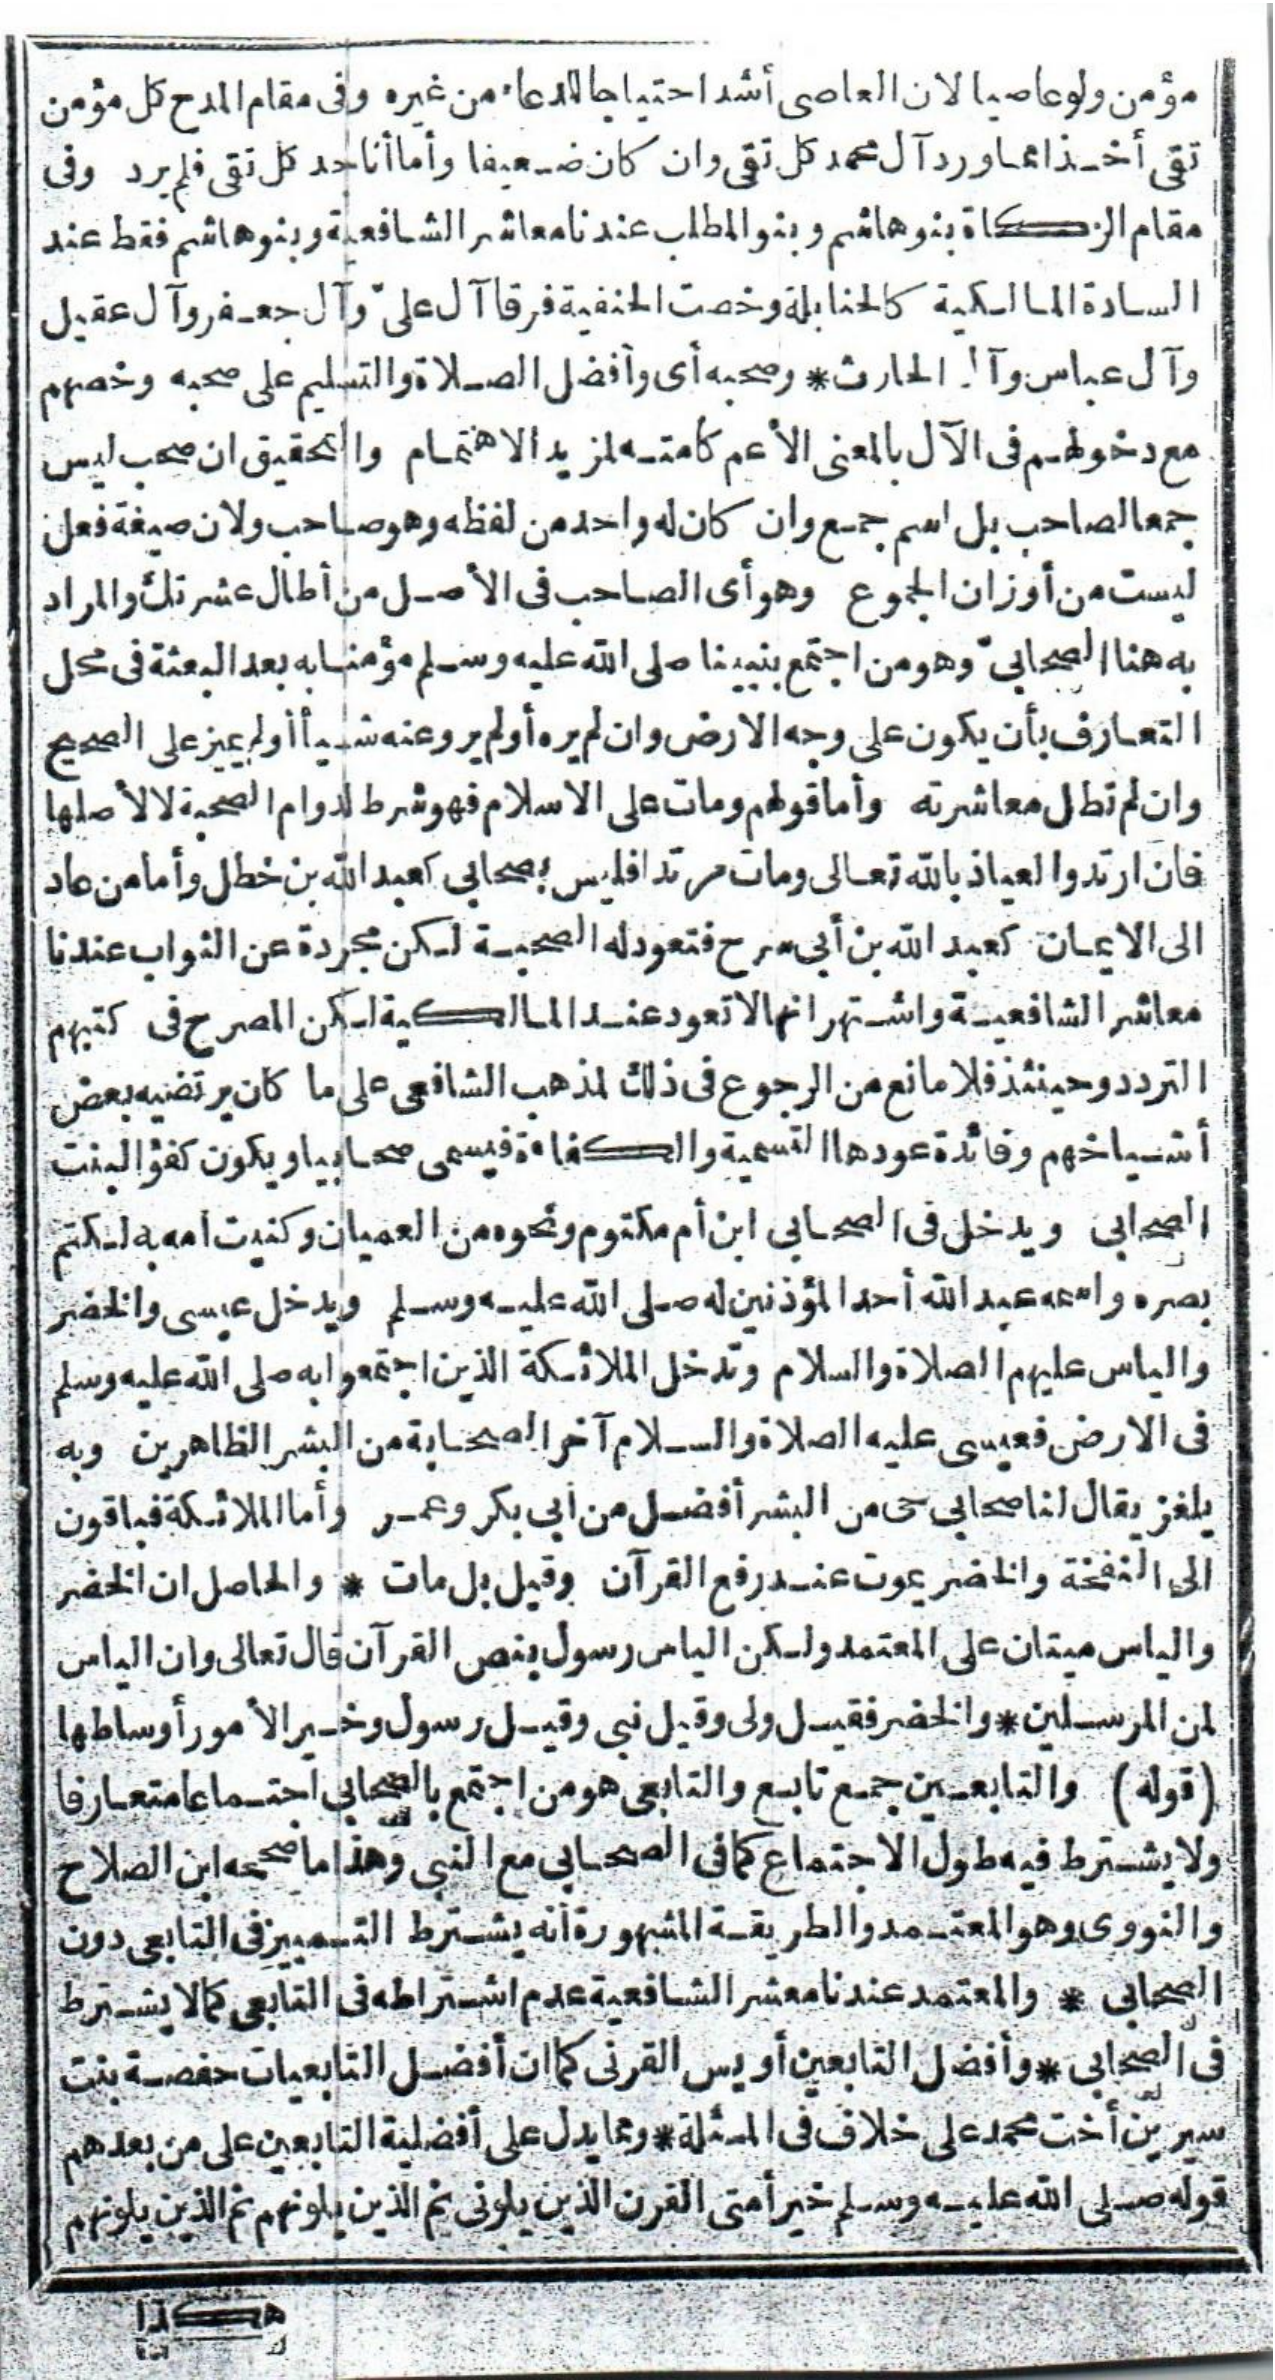 مؤمن ولو عاصيا لان العاصى أشد احتياجا للدعاء من غيره وفى مقام المدح كل مؤمن
تقى أخذا مما ورد آل محمد كل تقى وان كان ضعيفا وأما أنا جد كل تقى فلم يرد وفى
مقام الزكاة بنو هاشم وبنو المطلب عندنا معاشر الشافعية وبنو هاشم فقط عند
السادة المالكية كالحنابلة وخصت الحنفية فرقا آل علىّ وآل جعفر وآل عقيل
وآل عباس وآل الحارث * وصحبه أى وأفضل الصلاة والتسليم على صحبه وخصهم
مع دخولهم فى الآل بالمعنى الأعم كامته لمزيد الاهتمام والتحقيق ان صحب ليس
جمعا لصاحب بل اسم جمع وان كان له واحد من لفظه وهو صاحب ولان صيغة فعل
ليست من أوزان الجموع وهو أى الصاحب فى الأصل من أطال عشرتك والمراد
به هنا الصحابىّ وهو من اجتمع بنبينا صلى الله عليه وسلم مؤمنا به بعد البعثة فى محل
التعارف بأن يكون على وجه الارض وان لم يره أو لم يرو عنه شيأ أو لم يميز على الصحيح
وان لم تطل معاشرته وأما قولهم ومات على الاسلام فهو شرط لدوام الصحبة لا لأصلها
فان ارتد والعياذ بالله تعالى ومات مرتدا فليس بصحابى كعبد الله بن خطل وأما من عاد
الى الايمان كعبد الله بن أبى سرح فتعود له الصحبة لكن مجردة عن الثواب عندنا
معاشر الشافعية واشتهر انها لا تعود عند المالكية لكن المصرح فى كتبهم
التردد وحينئذ فلا مانع من الرجوع فى ذلك لمذهب الشافعى على ما كان يرتضيه بعض
أشياخهم وفائدة عودها التسمية والكفاءة فيسمى صحابيا ويكون كفؤا لبنت
الصحابى ويدخل فى الصحابى ابن أم مكتوم ونحوه من العميان وكنيت امه به لكتم
بصره واسمه عبد الله أحد المؤذنين له صلى الله عليه وسلم ويدخل عيسى والخضر
والياس عليهم الصلاة والسلام وتدخل الملائكة الذين اجتمعوا به صلى الله عليه وسلم
فى الارض فعيسى عليه الصلاة والسلام آخر الصحابة من البشر الظاهرين وبه
يلغز يقال لنا صحابى حى من البشر أفضل من أبى بكر وعمر وأما الملائكة فباقون
الى النفخة والخضر يموت عند رفع القرآن وقيل بل مات * والحاصل ان الخضر
والياس ميتان على المعتمد ولكن الياس رسول بنص القرآن قال تعالى وان الياس
لمن المرسلين * والخضر فقيل ولى وقيل نبى وقيل رسول وخير الأمور أوساطها
(قوله) والتابعين جمع تابع والتابعى هو من اجتمع بالصحابى اجتماعا متعارفا
ولا يشترط فيه طول الاجتماع كما فى الصحابى مع النبى وهذا ما صححه ابن الصلاح
والنووى وهو المعتمد والطريقة المشهورة أنه يشترط التمييز فى التابعى دون
الصحابى * والمعتمد عندنا معشر الشافعية عدم اشتراطه فى التابعى كما لا يشترط
فى الصحابى * وأفضل التابعين أويس القرنى كما ان أفضل التابعيات حفصة بنت
سيرين أخت محمد على خلاف فى المسئلة * ومما يدل على أفضلية التابعين على من بعدهم
قوله صلى الله عليه وسلم خير أمتى القرن الذين يلونى ثم الذين يلونهم ثم الذين يلونهم
هكذا